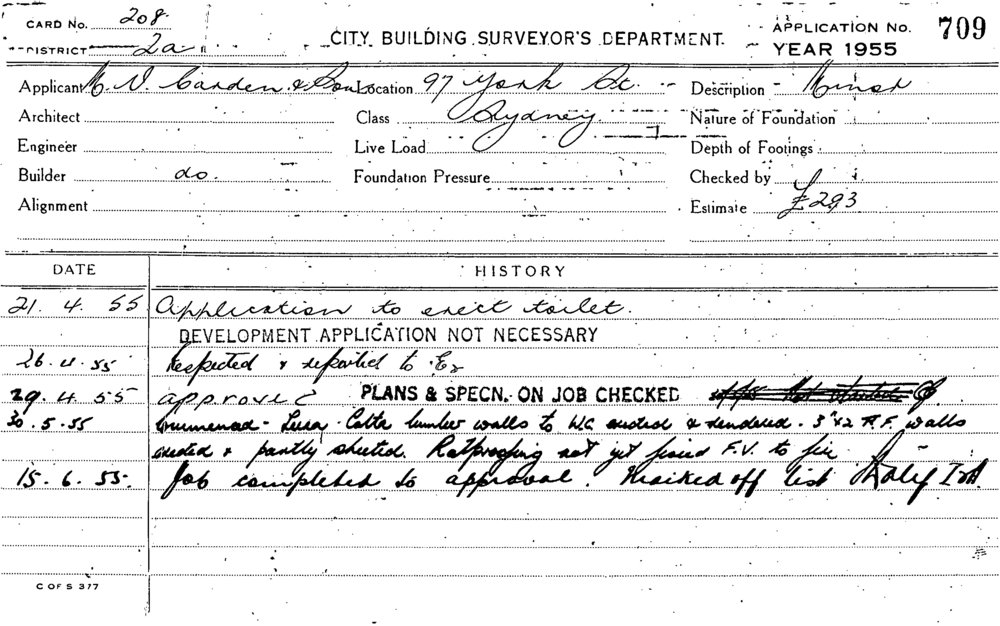 CARD No. 208.
DISTRICT 2a
CITY BUILDING SURVEYOR'S DEPARTMENT.
APPLICATION No. 709
YEAR 1955
Applicant Carden & Son Location 97 York St. Description Minor
Architect Class Sydney Nature of Foundation
Engineer Live Load Depth of Footings
Builder do. Foundation Pressure Checked by
Alignment Estimate £293
DATE HISTORY
21. 4. 55 Application to erect toilet.
DEVELOPMENT APPLICATION NOT NECESSARY
26.4.55 Inspected & reported to
29.4.55 approved PLANS & SPECN. ON JOB CHECKED
30.5.55 Commenced - Terra Cotta lumber walls to WC erected & rendered. 3"x2 walls
erected & partly sheeted. Ratproofing not yet fixed F.V. to fix
15.6.55. Job completed to approval. Marked off list
C OF S 377